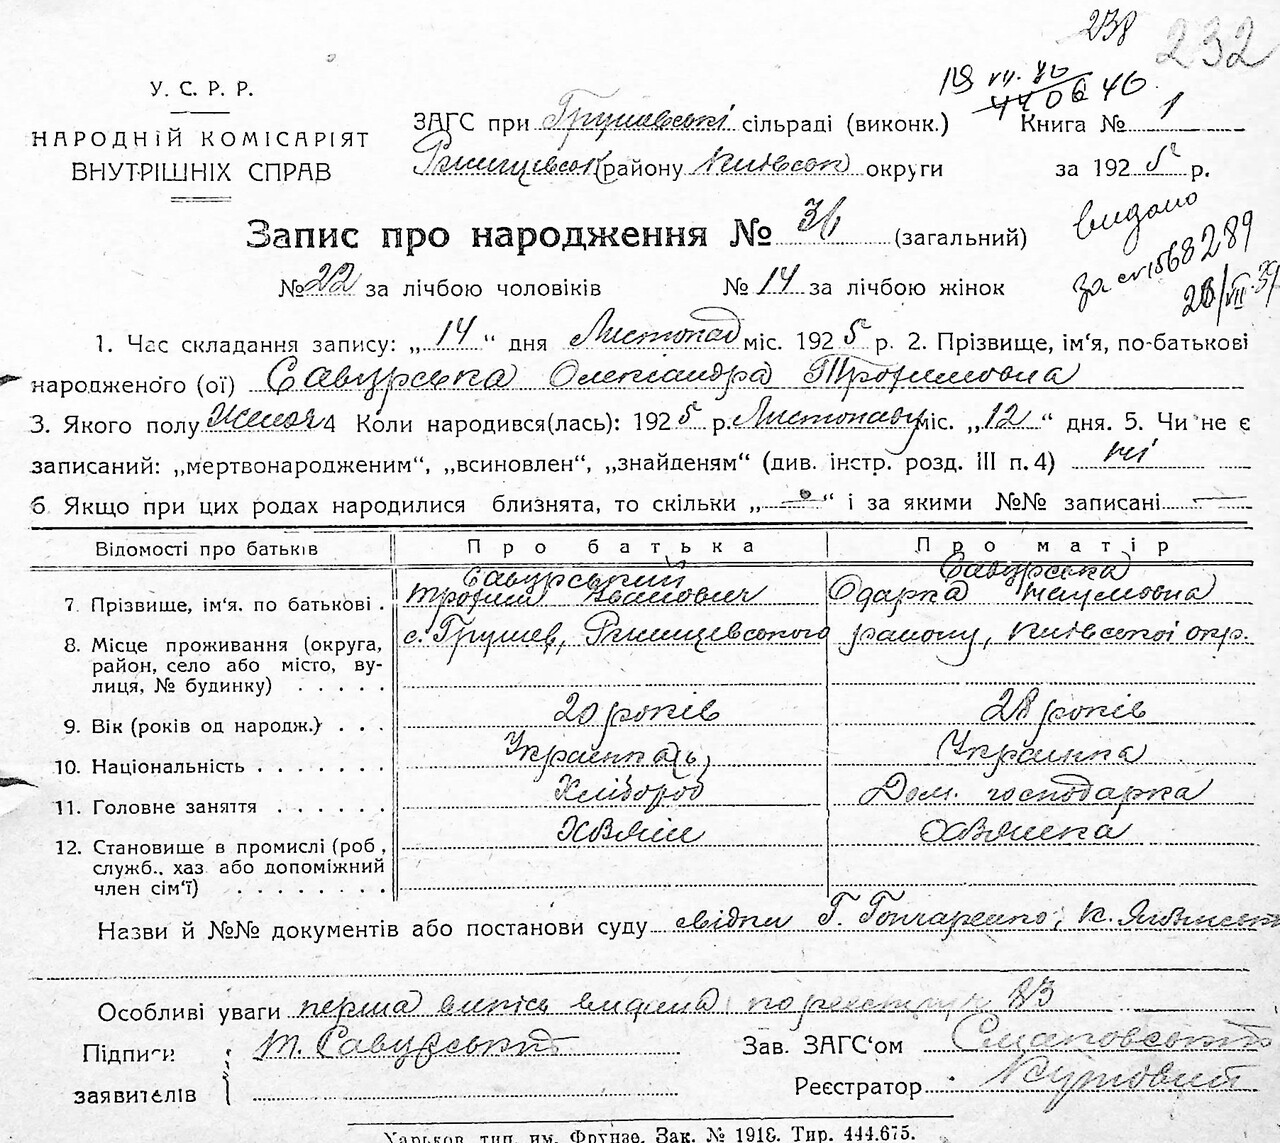 238 232
У. С. Р. Р.
НАРОДНІЙ КОМІСАРІЯТ
ВНУТРІШНІХ СПРАВ
ЗАГС при Грушевські сільраді (виконк.) Книга № 1
Ржищевськ району Київськ округи за 1925 р.
Запис про народження № 36 (загальний)
видано
№ 22 за лічбою чоловіків № 14 за лічбою жінок
1. Час складання запису: „14“ дня Листопад міс. 1925 р. 2. Прізвище, ім‘я, по-батькові
народженого (ої) Савурська Олександра Трофимовна
3. Якого полу Жіноч 4 Коли народився(лась): 1925 р. Листопаду міс. „12“ дня. 5. Чи не є
записаний: „мертвонародженим“, „всиновлен“, „знайденям“ (див. інстр. розд. III п. 4) ні
6 Якщо при цих родах народилися близнята, то скільки „—“ і за якими №№ записані —
Відомості про батьків Про батька Про матір
7. Прізвище, ім‘я. по батькові. Савурський Трофим Іванович Савурська Одарка Наумовна
8. Місце проживання (округа, с. Грушев, Ржищевського району, Київської окр.
район, село або місто, ву-
лиця, № будинку) . . . . .
9. Вік (років од народж.) . . . 20 років 28 років
10. Національність . . . . . . . Украинка
11. Головне заняття . . . . . . Хлібороб Дом. господарка
12. Становище в промислі (роб., Хазяїн
служб., хаз або допоміжний
член сім‘ї) . . . . . . . .
Назви й №№ документів або постанови суду свідки Г. Гончаренко, К.
Особливі уваги перша випись видана по реєстру 83
Підписи Т. Савурський Зав. ЗАГС‘ом
заявителів Реєстратор
Харьков, тип. им. Фрунзе. Зак. № 1918. Тир. 444.675.